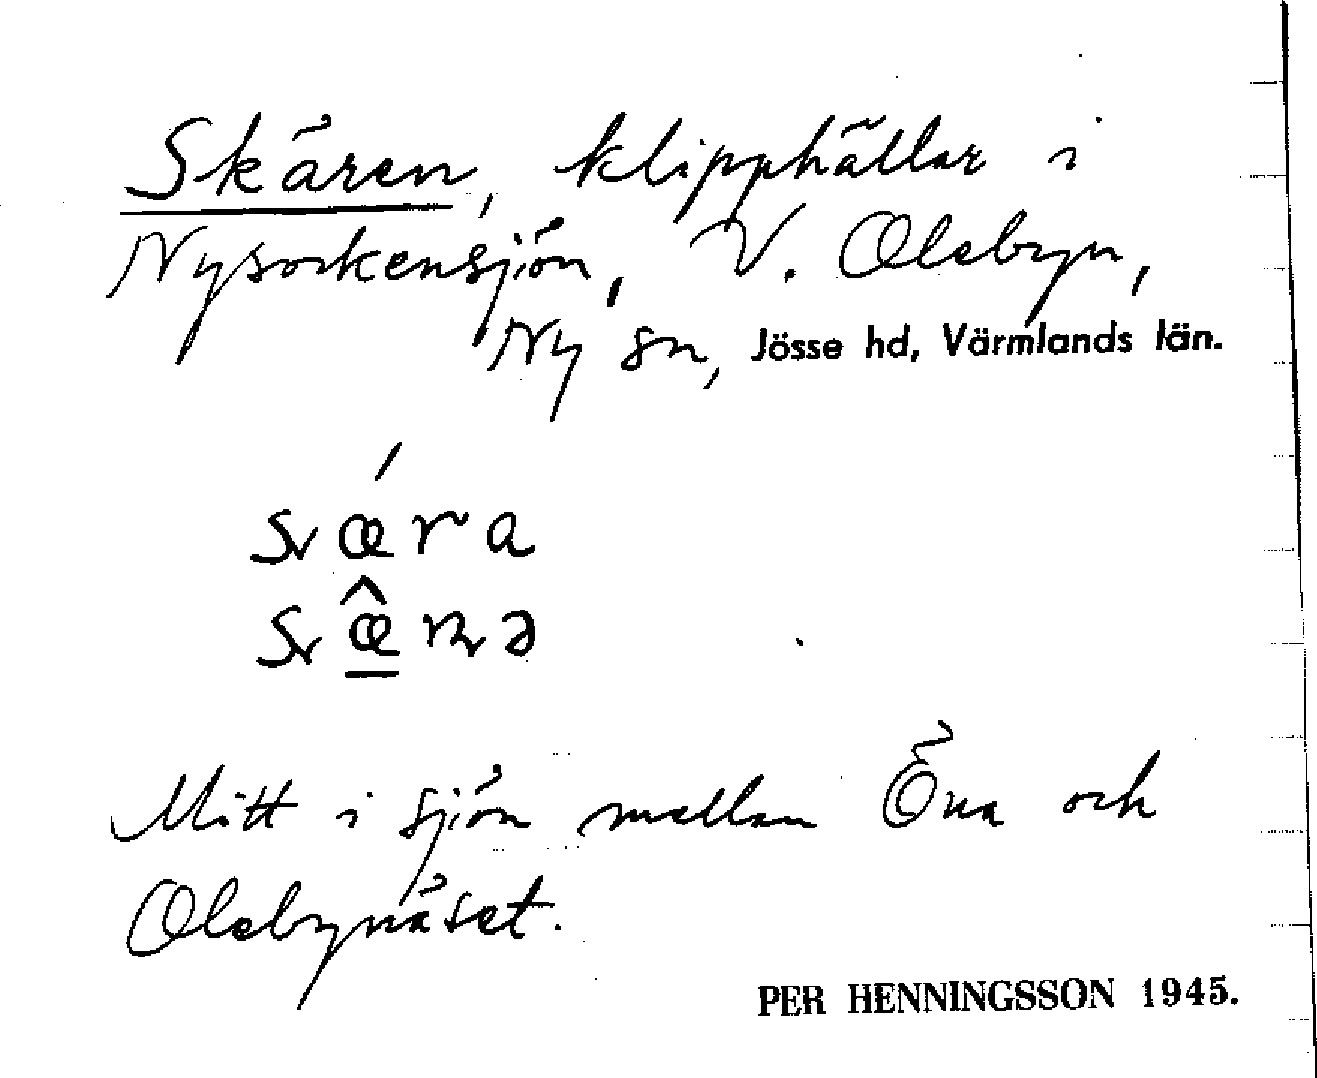 Skären, klipphällar i
Nysockensjön, V. Olebyn,
Ny sn, Jösse hd, Värmlands län.
Mitt i sjön mellan Öna och
Olebynäset.
PER HENNINGSSON 1945.